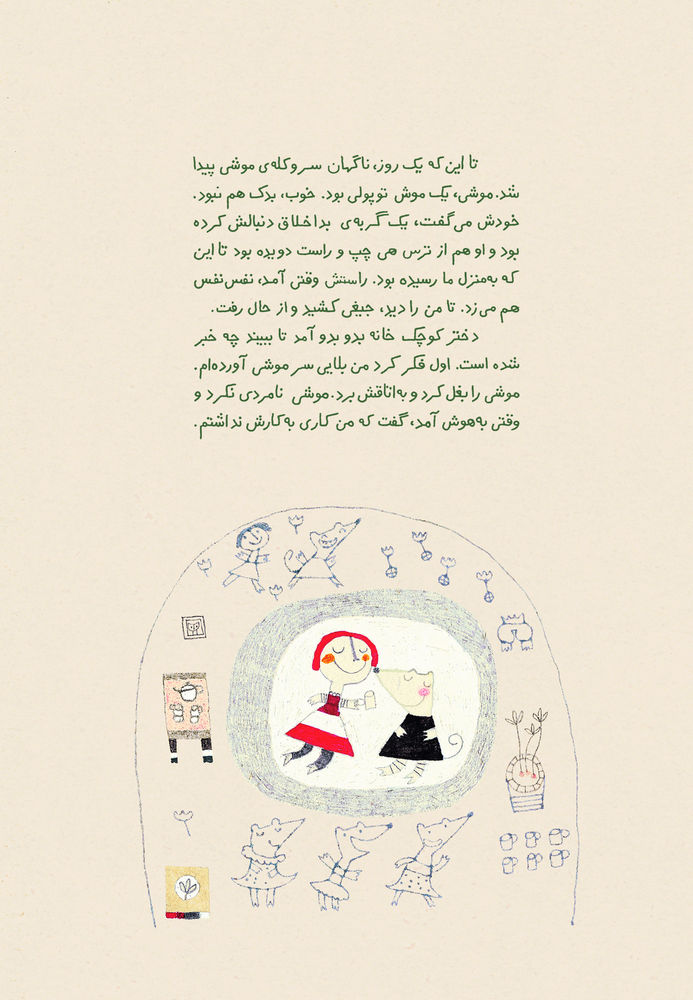 تا این که یک روز، ناگهان سر و کله‌ی موشی پیدا
شد. موشی، یک موش توپولی بود. خوب، بدک هم نبود.
خودش می‌گفت، یک گربه‌ی بداخلاق دنبالش کرده
بود و او هم از ترس هی چپ و راست دویده بود تا این
که به‌منزل ما رسیده بود. راستش وقتی آمد، نفس‌نفس
هم می‌زد. تا من را دید، جیغی کشید و از حال رفت.
دختر کوچک خانه بدو بدو آمد تا ببیند چه خبر
شده است. اول فکر کرد من بلایی سر موشی آورده‌ام.
موشی را بغل کرد و به‌اتاقش برد. موشی نامردی نکرد و
وقتی به‌هوش آمد، گفت که من کاری به‌کارش نداشتم.